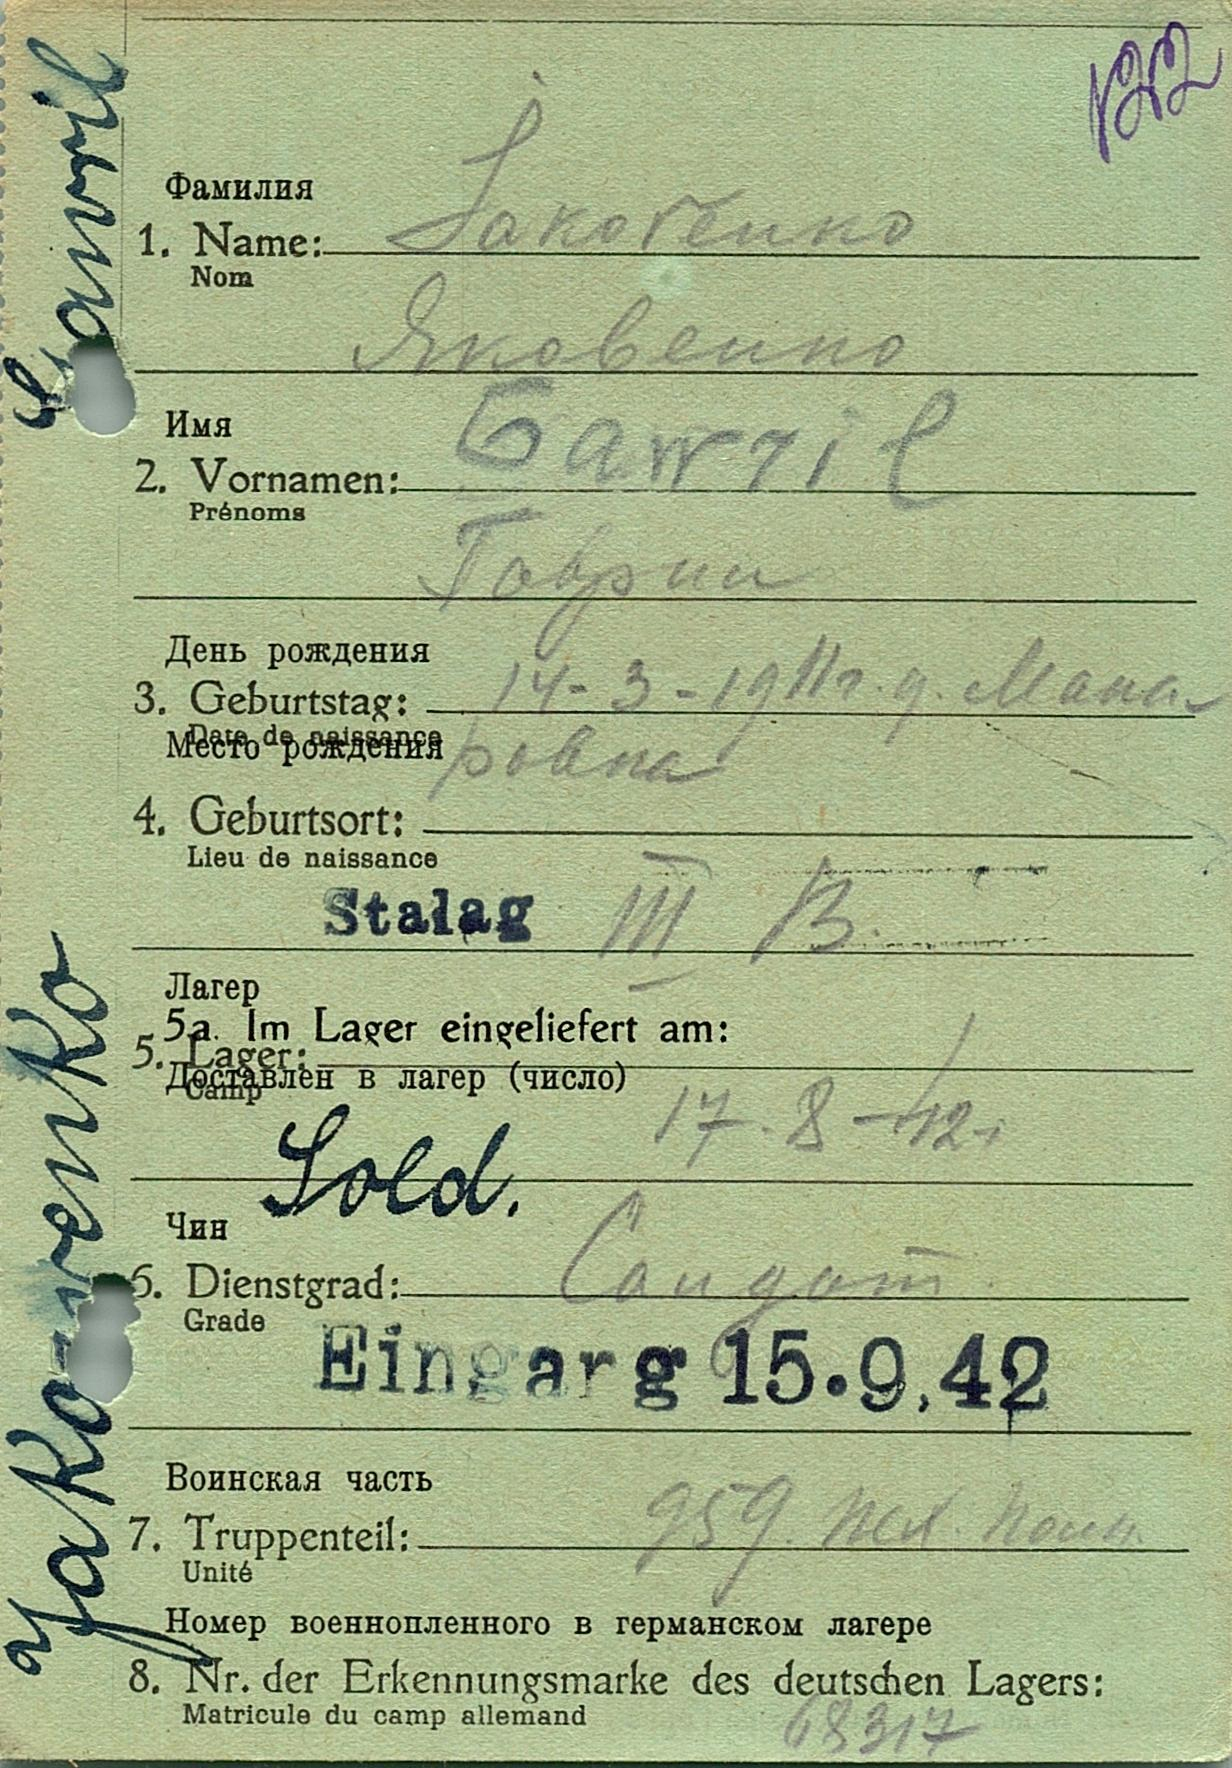 122
Фамилия
1. Name: Jakovenko
Nom
Яковенко
Имя
2. Vornamen: Gawril
Prénoms
Гаврил
День рождения
3. Geburtstag: 14-3-1911 г. д. Мака-
Date de naissance
Место рождения ровка
4. Geburtsort:
Lieu de naissance
Stalag III B.
Лагер
5a. Im Lager eingeliefert am:
5. Lager:
Доставлен в лагер (число)
Camp
17.8-42.
Sold.
Чин
6. Dienstgrad: Солдат.
Grade
Eingarg 15.9.42
Воинская часть
7. Truppenteil: 959.
Unité
Номер военнопленного в германском лагере
8. Nr. der Erkennungsmarke des deutschen Lagers:
Matricule du camp allemand 68317
Jakowenko Gawril